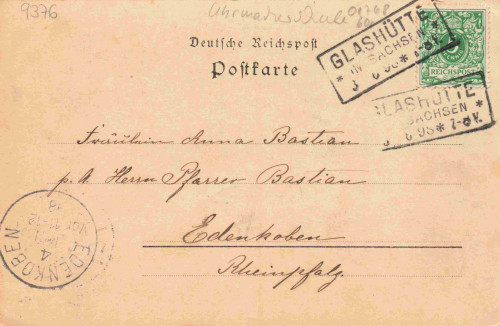 9376
Uhrmacherschule
Deutsche Reichspost
Postkarte
GLASHÜTTE
* IN SACHSEN *
REICHSPOST
GLASHÜTTE
SACHSEN
98 * 7-8V.
Fräulein Anna Bastian
p. A. Herrn Pfarrer Bastian
Edenkoben
Rheinpfalz.
EDENKOBEN.
4